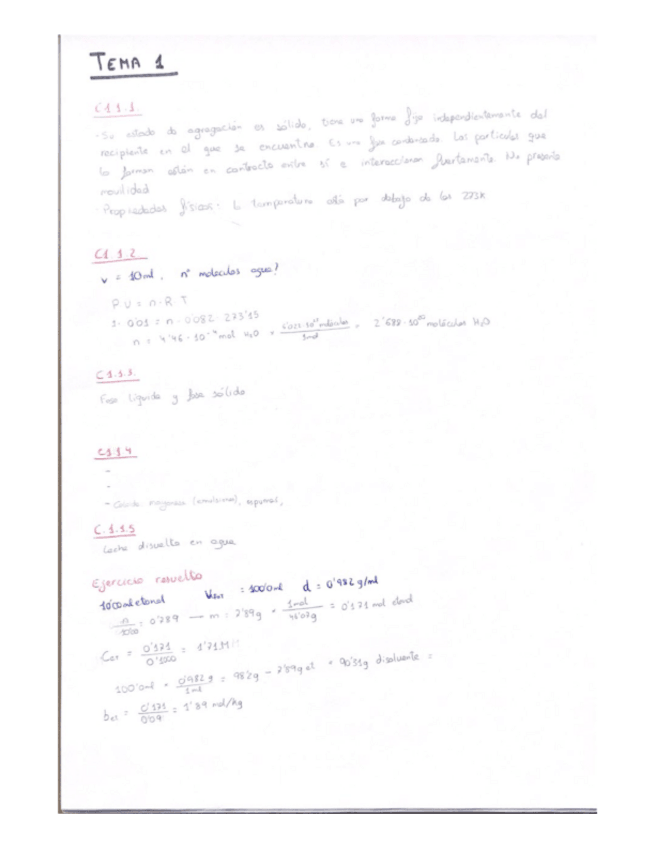 TEMA 1
C1.1.1
- Su estado de agregación es sólido, tiene una forma fija independientemente del
recipiente en el que se encuentre. Es una fase condensada. Las partículas que
la forman están en contacto entre sí e interaccionan fuertemente. No presenta
movilidad
- Propiedades físicas: la temperatura está por debajo de los 273K
C1.1.2
V = 10ml, nº moléculas agua?
P·V = n·R·T
1·0'01 = n·0'082·273'15
n = 4'46·10⁻⁴ mol H₂O × 6'022·10²³ moléculas / 1mol = 2'688·10²⁰ moléculas H₂O
C1.1.3.
Fase líquida y fase sólida
C1.1.4
-
-
- (emulsiones), espumas,
C.1.1.5
Leche disuelta en agua
Ejercicio resuelto
10'00ml etanol = 100'0ml d = 0'982 g/ml
m/10'00 = 0'789 — m = 7'89g × 1mol / 46'07g = 0'171 mol etanol
Cet = 0'171 / 0'1000 = 1'71M
100'0ml × 0'982 g / 1ml = 98'2g - 7'89g et = 90'31g disolvente =
bet = 0'171 / 0'09 = 1'89 mol/kg